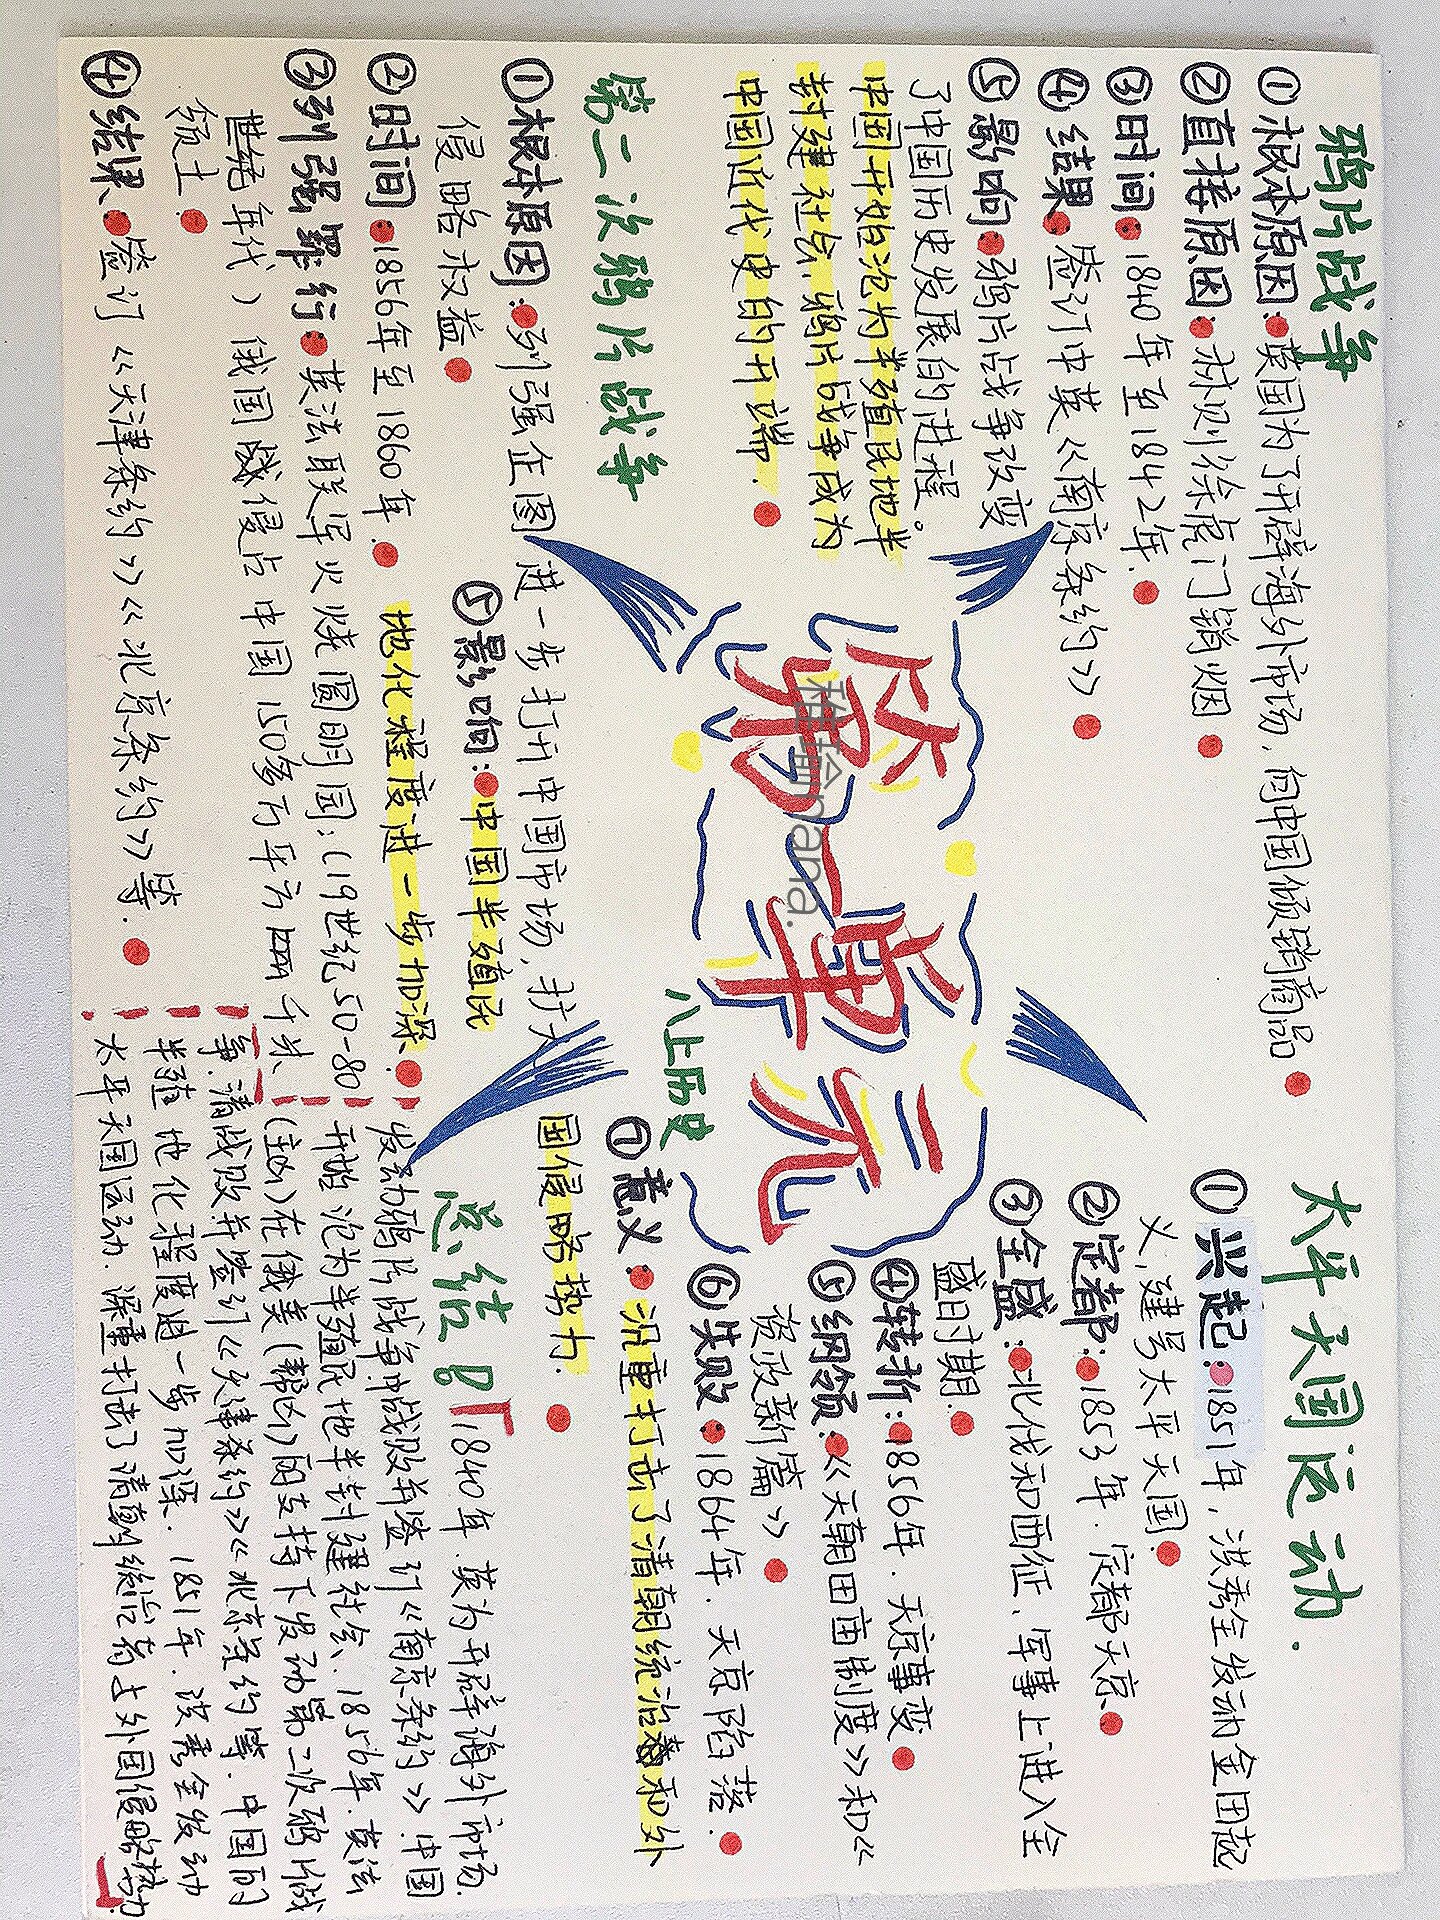 鸦片战争
①根本原因:英国为了开辟海外市场,向中国倾销商品
②直接原因:林则徐虎门销烟
③时间:1840年至1842年.
④结果:签订中英《南京条约》
⑤影响:鸦片战争改变
了中国历史发展的进程。
中国开始沦为半殖民地半
封建社会.鸦片战争成为
中国近代史的开端.
第二次鸦片战争
①根本原因:列强企图进一步打开中国市场,扩大
侵略权益
②时间:1856年至1860年.
③列强罪行:英法联军火烧圆明园;(19世纪50-80
世纪年代)俄国侵占中国150多万平方千米
领土
④结果:签订《天津条约》《北京条约》等.
⑤影响:中国半殖民
地化程度进一步加深.
第一单元
八上历史
雅瑜nana.
太平天国运动.
①兴起:1851年,洪秀全发动金田起
义,建号太平天国.
②定都:1853年.定都天京.
③全盛:北伐和西征,军事上进入全
盛时期.
④转折:1856年.天京事变
⑤纲领:《天朝田亩制度》和《
资政新篇》
⑥失败:1864年.天京陷落.
⑦意义:沉重打击了清朝统治者和外
国侵略势力.
总结
1840年.英为开辟海外市场.
发动鸦片战争.中战败并签订《南京条约》.中国
开始沦为半殖民地半封建社会.1856年.英法
(主凶)在俄美(帮凶)的支持下发动第二次鸦片战
争.清战败并签订《天津条约》《北京条约等.中国的
半殖地化程度进一步加深.1851年.洪秀全发动
太平天国运动.深重打击了清朝统治者与外国侵略势力.